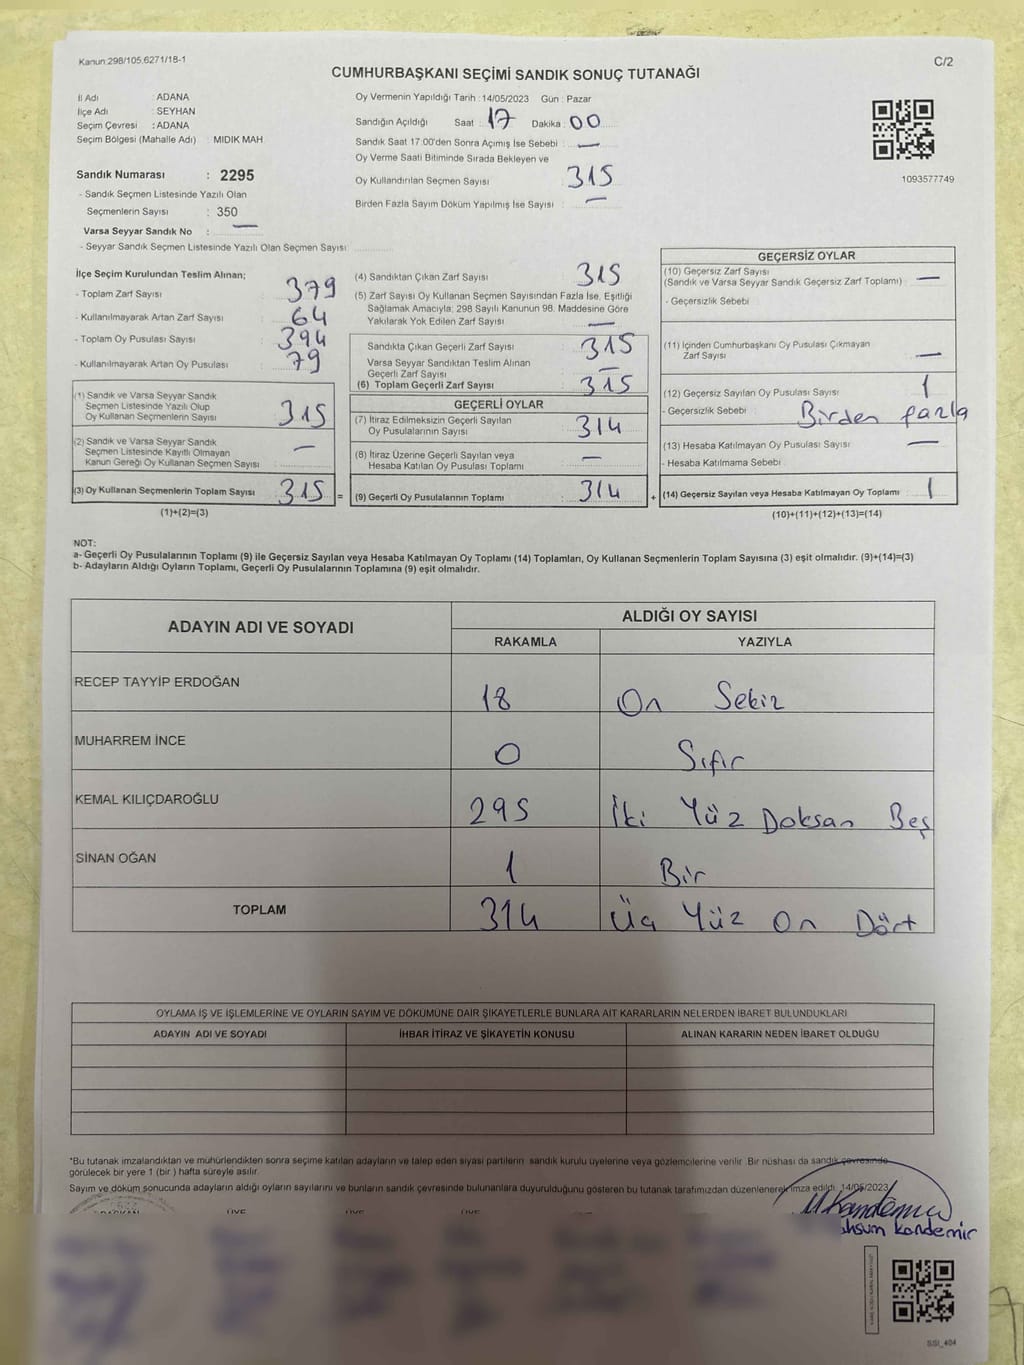 Kanun:298/105,6271/18-1
C/2
CUMHURBAŞKANI SEÇİMİ SANDIK SONUÇ TUTANAĞI
İl Adı ADANA
İlçe Adı SEYHAN
Seçim Çevresi : ADANA
Seçim Bölgesi (Mahalle Adı) : MIDIK MAH
Sandık Numarası : 2295
- Sandık Seçmen Listesinde Yazılı Olan
Seçmenlerin Sayısı : 350
Varsa Seyyar Sandık No : —
- Seyyar Sandık Seçmen Listesinde Yazılı Olan Seçmen Sayısı
Oy Vermenin Yapıldığı Tarih : 14/05/2023 Gün : Pazar
Sandığın Açıldığı Saat : 17 Dakika : 00
Sandık Saat 17:00'den Sonra Açımış İse Sebebi : —
Oy Verme Saati Bitiminde Sırada Bekleyen ve
Oy Kullandırılan Seçmen Sayısı 315
Birden Fazla Sayım Döküm Yapılmış İse Sayısı : —
1093577749
İlçe Seçim Kurulundan Teslim Alınan;
- Toplam Zarf Sayısı : 379
- Kullanılmayarak Artan Zarf Sayısı : 64
- Toplam Oy Pusulası Sayısı : 394
- Kullanılmayarak Artan Oy Pusulası : 79
(1) Sandık ve Varsa Seyyar Sandık
Seçmen Listesinde Yazılı Olup
Oy Kullanan Seçmenlerin Sayısı : 315
(2) Sandık ve Varsa Seyyar Sandık
Seçmen Listesinde Kayıtlı Olmayan
Kanun Gereği Oy Kullanan Seçmen Sayısı : —
(3) Oy Kullanan Seçmenlerin Toplam Sayısı : 315 =
(1)+(2)=(3)
(4) Sandıktan Çıkan Zarf Sayısı : 315
(5) Zarf Sayısı Oy Kullanan Seçmen Sayısından Fazla İse, Eşitliği
Sağlamak Amacıyla; 298 Sayılı Kanunun 98. Maddesine Göre
Yakılarak Yok Edilen Zarf Sayısı : —
Sandıkta Çıkan Geçerli Zarf Sayısı : 315
Varsa Seyyar Sandıktan Teslim Alınan
Geçerli Zarf Sayısı : —
(6) Toplam Geçerli Zarf Sayısı : 315
GEÇERLİ OYLAR
(7) İtiraz Edilmeksizin Geçerli Sayılan
Oy Pusulalarının Sayısı : 314
(8) İtiraz Üzerine Geçerli Sayılan veya
Hesaba Katılan Oy Pusulası Toplamı : —
(9) Geçerli Oy Pusulalarının Toplamı : 314 +
GEÇERSİZ OYLAR
(10) Geçersiz Zarf Sayısı
(Sandık ve Varsa Seyyar Sandık Geçersiz Zarf Toplamı) : —
- Geçersizlik Sebebi :
(11) İçinden Cumhurbaşkanı Oy Pusulası Çıkmayan
Zarf Sayısı : —
(12) Geçersiz Sayılan Oy Pusulası Sayısı : 1
- Geçersizlik Sebebi : Birden fazla
(13) Hesaba Katılmayan Oy Pusulası Sayısı : —
- Hesaba Katılmama Sebebi :
(14) Geçersiz Sayılan veya Hesaba Katılmayan Oy Toplamı : 1
(10)+(11)+(12)+(13)=(14)
NOT:
a- Geçerli Oy Pusulalarının Toplamı (9) ile Geçersiz Sayılan veya Hesaba Katılmayan Oy Toplamı (14) Toplamları, Oy Kullanan Seçmenlerin Toplam Sayısına (3) eşit olmalıdır. (9)+(14)=(3)
b- Adayların Aldığı Oyların Toplamı, Geçerli Oy Pusulalarının Toplamına (9) eşit olmalıdır.
ADAYIN ADI VE SOYADI ALDIĞI OY SAYISI
RAKAMLA YAZIYLA
RECEP TAYYİP ERDOĞAN 18 On Sekiz
MUHARREM İNCE 0 Sıfır
KEMAL KILIÇDAROĞLU 295 İki Yüz Doksan Beş
SİNAN OĞAN 1 Bir
TOPLAM 314 Üç Yüz On Dört
OYLAMA İŞ VE İŞLEMLERİNE VE OYLARIN SAYIM VE DÖKÜMÜNE DAİR ŞİKAYETLERLE BUNLARA AİT KARARLARIN NELERDEN İBARET BULUNDUKLARI
ADAYIN ADI VE SOYADI İHBAR İTİRAZ VE ŞİKAYETİN KONUSU ALINAN KARARIN NEDEN İBARET OLDUĞU
*Bu tutanak imzalandıktan ve mühürlendikten sonra seçime katılan adayların ve talep eden siyasi partilerin sandık kurulu üyelerine veya gözlemcilerine verilir. Bir nüshası da sandık çevresinde
görülecek bir yere 1 (bir ) hafta süreyle asılır.
Sayım ve döküm sonucunda adayların aldığı oyların sayılarını ve bunların sandık çevresinde bulunanlara duyurulduğunu gösteren bu tutanak tarafımızdan düzenlenerek imza edildi. 14/05/2023
BAŞKAN ÜYE ÜYE ÜYE
M Kandemir
kandemir
SSI_404